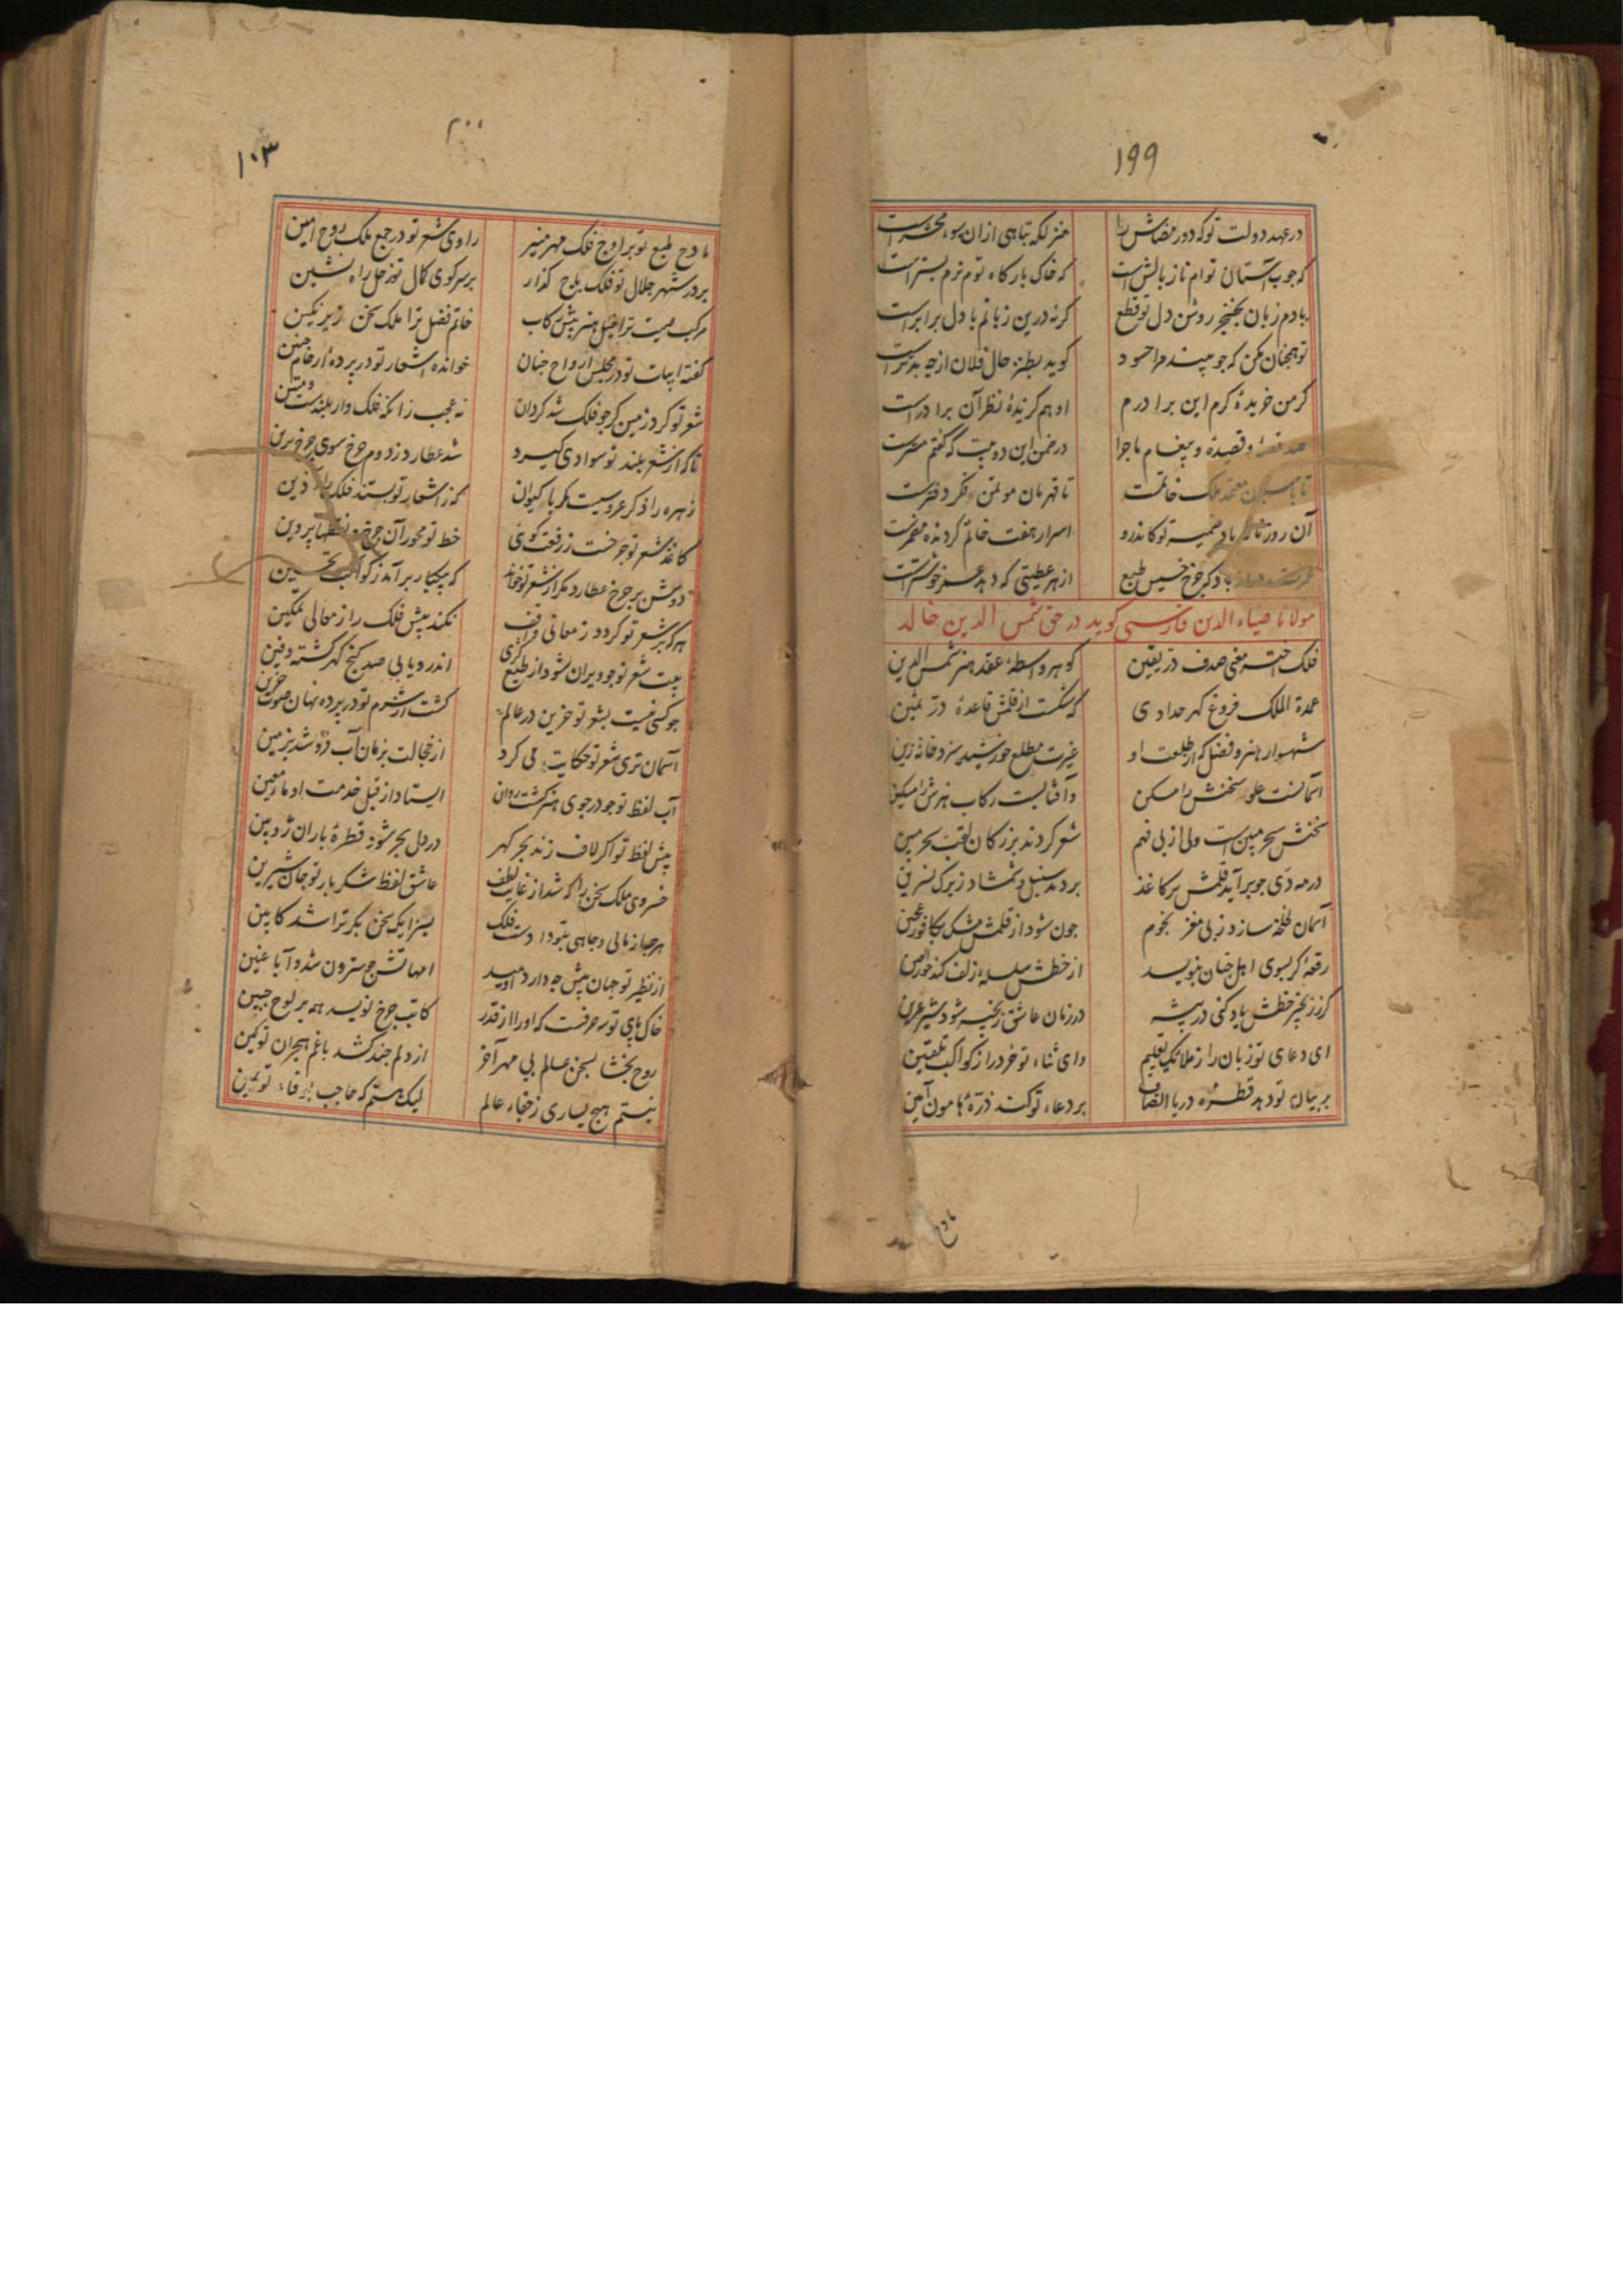 ۱۹۹
در عهد دولت تو که دور مضاش را هنر لکه تباهی ازان سوء محشر است
که چوب آستان توام ناز بالش است که خاک بارکاه توم نرم بستر است
بادم زبان بخنجر روشن دل تو قطع کرنه درین زبانم با دل برابر است
تو همچنان مکن که جو بیند مرا حسود کوید بطنز حال فلان از چه بدتر است
کر من خریدهٔ کرم این برادرم او هم کزیدهٔ نظر آن برادر است
صد قصهٔ و قصیده و پیغام ماجرا در ضمن این دو بیت که گفتم مضمر است
تا معتمد ملک خاتمت تا قهرمان مؤتمن فکر دفتر است
آن روز باد ضمیر تو کاندرو اسرار هفت خاتم کردنده مضمر است
باد که چرخ خسیس طبع از هر عطیتی که دهد عمر خوشتر است
مولانا ضیاء الدین فارسی کوید در حق شمس الدین خالد
فلک اختر معنی صدف در یقین کوهر واسطهٔ عقد هنر شمس الدین
عمدة الملک فروغ کهر حدادی که شکست از قلمش قاعدهٔ در ثمین
شهسوار هنر و فضل که از طلعت او غیرت مطلع خورشید سزد خانهٔ زین
آسمانست علو سخنش را مسکن وافتابست رکاب هنرش را میکن
سخنش سحر مبین است ولی از بی فهم شعر کردند بزرکان لقب سحر مبین
در مه دی جو برآید قلمش بر کاغذ بردمد سنبل و شمشاد ز برک نسرین
آسمان لخلخه سازد ز بی مغز نجوم جون شود از قلمش مشک بکافور عجین
رقعهٔ کر بسوی اهل جنان بنویسد از خطش سلسلهٔ زلف کند حور العین
کر ز زنجیر خطش یاد کنی در بیشه در زمان عاشق زنجیر شود شیر عرین
ای دعای تو زبان را ز ملائک تعلیم وای ثناء تو خرد را ز کواکب تلقین
بر بیان تو دهد قطرهٔ دریا انصاف بر دعاء تو کند ذرهٔ هامون آمین
مادح
۲۰۰
۱۰۳
مادح طبع تو بر اوج فلک مهر منیر راوی شعر تو در جمع ملک روح امین
بر در شهر جلال تو فلک باج کذار بر سر کوی کمال تو زحل راه نشین
مرکب صیت ترا خیل هنر پیش رکاب خاتم فضل ترا ملک سخن زیر نکین
کفته ابیات تو در مجلس ارواح جنان خوانده اشعار تو در پردهٔ ارحام جنین
شعر تو کرد زمین کر جو فلک شد کردان نه عجب زانکه فلک وار بلندست و متین
تا که از شعر بلند تو سوادی کیرد شد عطارد ز دوم چرخ سوی چرخ برین
زهره را ذکر عروسیت مکر با کیوان که ز اشعار تو بستند فلک را آذین
کاغذ شعر تو چرخست ز رفعت کوئی خط تو محور آن چرخ و نقطها پروین
دوش بر چرخ عطارد مکر از شعر تو خواند که بیکبار برآمد ز کواکب تحسین
هر که بر شعر تو کردد ز معانی واقف نکند پیش فلک را ز معالی تمکین
بیت شعر تو جو ویران نشود از طبع کزی اندرو یابی صد کنج کهر کشته دفین
جو کسی نیست بشعر تو حزین در عالم کشت از شرم تو در پرده نهان صوت حزین
آسمان تری شعر تو حکایت می کرد از خجالت بزمان آب فرو شد بزمین
آب لفظ تو جو در جوی هنر کشت روان ایستاد از قبل خدمت او ماء معین
پیش لفظ تو اکر لاف زند بحر کهر در دل بحر شود قطرهٔ باران زوبین
خسروی ملک سخن را که شد از غایت لطف عاشق لفظ شکر بار تو جان شیرین
هر جهاز مالی و جاهی بتو داد دست فلک بسزا یک سخن بکر ترا شد کابین
از نظیر تو جهان بیش جه دارد امید امهاتش جو سترون شد و آبا عنین
خاک پای تو جه حرفست که او را از قدر کاتب چرخ نویسد همه بر لوح جبین
روح بخشا بسخن عالم بی مهر آخر از دلم چند کشد با غم هجران تو کین
نیستم هیچ یساری ز جفاء عالم لیک هستم که حاجب بوفاء تو یمین